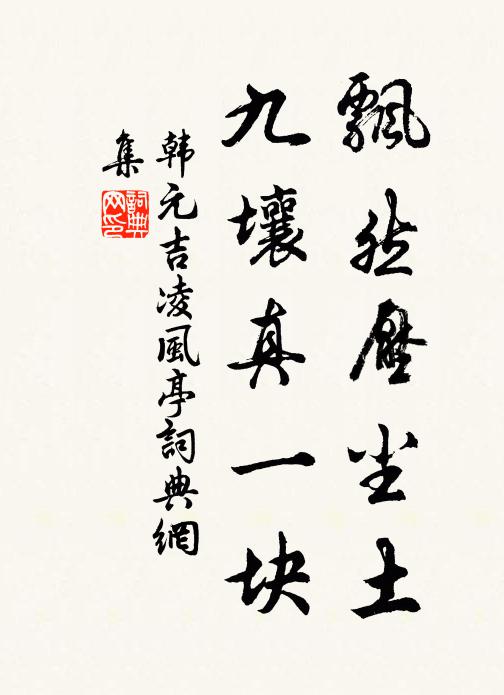 飄然壓尘土
九壤真一块
韩元吉凌風亭詞典網
集
詞典
网印